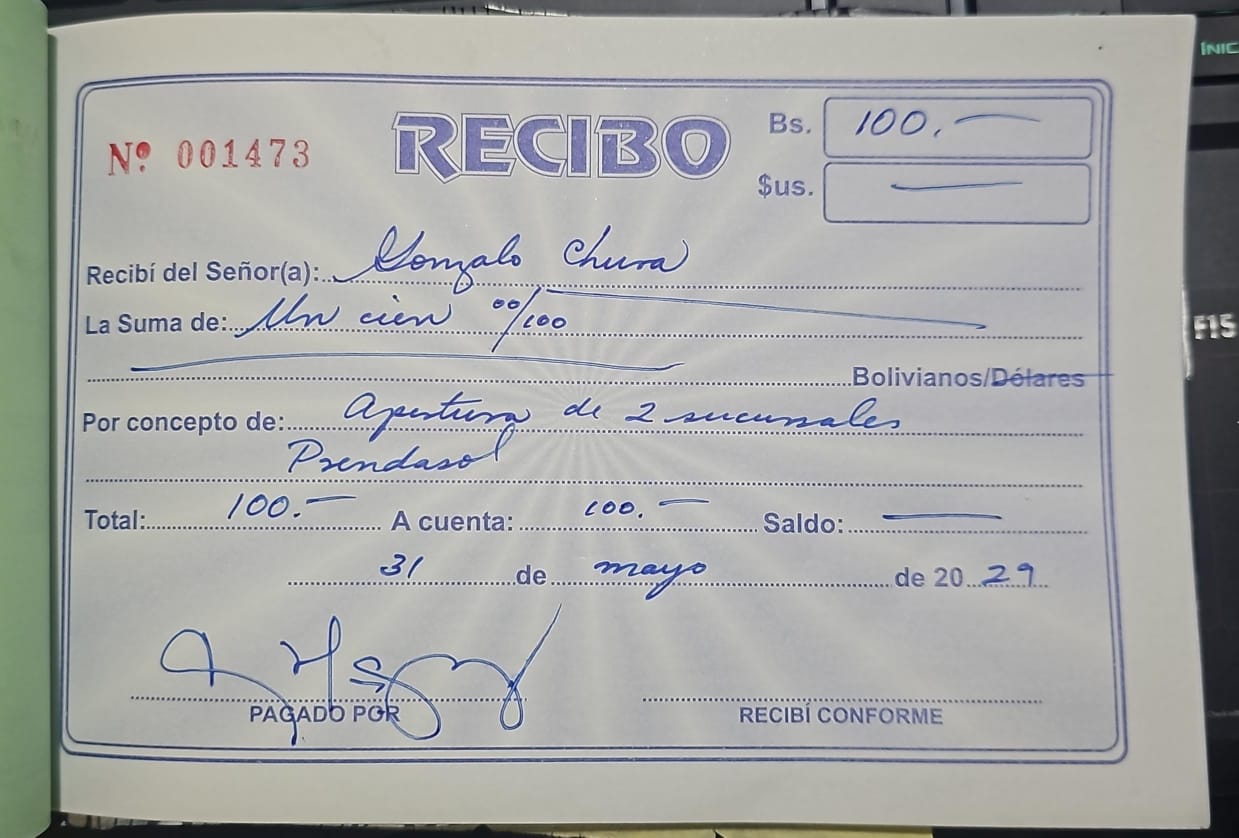 Nº 001473
RECIBO
Bs. 100.-
$us. -
Recibí del Señor(a): Gonzalo Chura
La Suma de: Un cien 00/100
Bolivianos/Dólares
Por concepto de: Apertura de 2 sucursales
Prendasol
Total: 100.- A cuenta: 100.- Saldo: -
31 de mayo de 20 29
PAGADO POR
RECIBÍ CONFORME
INIC
F15